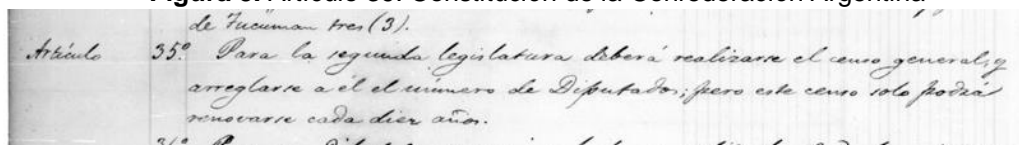 de Tucuman tres (3).
Artículo 35º Para la segunda legislatura deberá realizarse el censo general, y
arreglarse a él el numero de Diputados; pero este censo solo podrá
renovarse cada diez años.